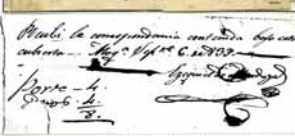 Recibi la correspondencia contenida bajo esta
cubierta Sept.e 6. de 1899.
Ezequiel
Porte - 4.
4.
8.